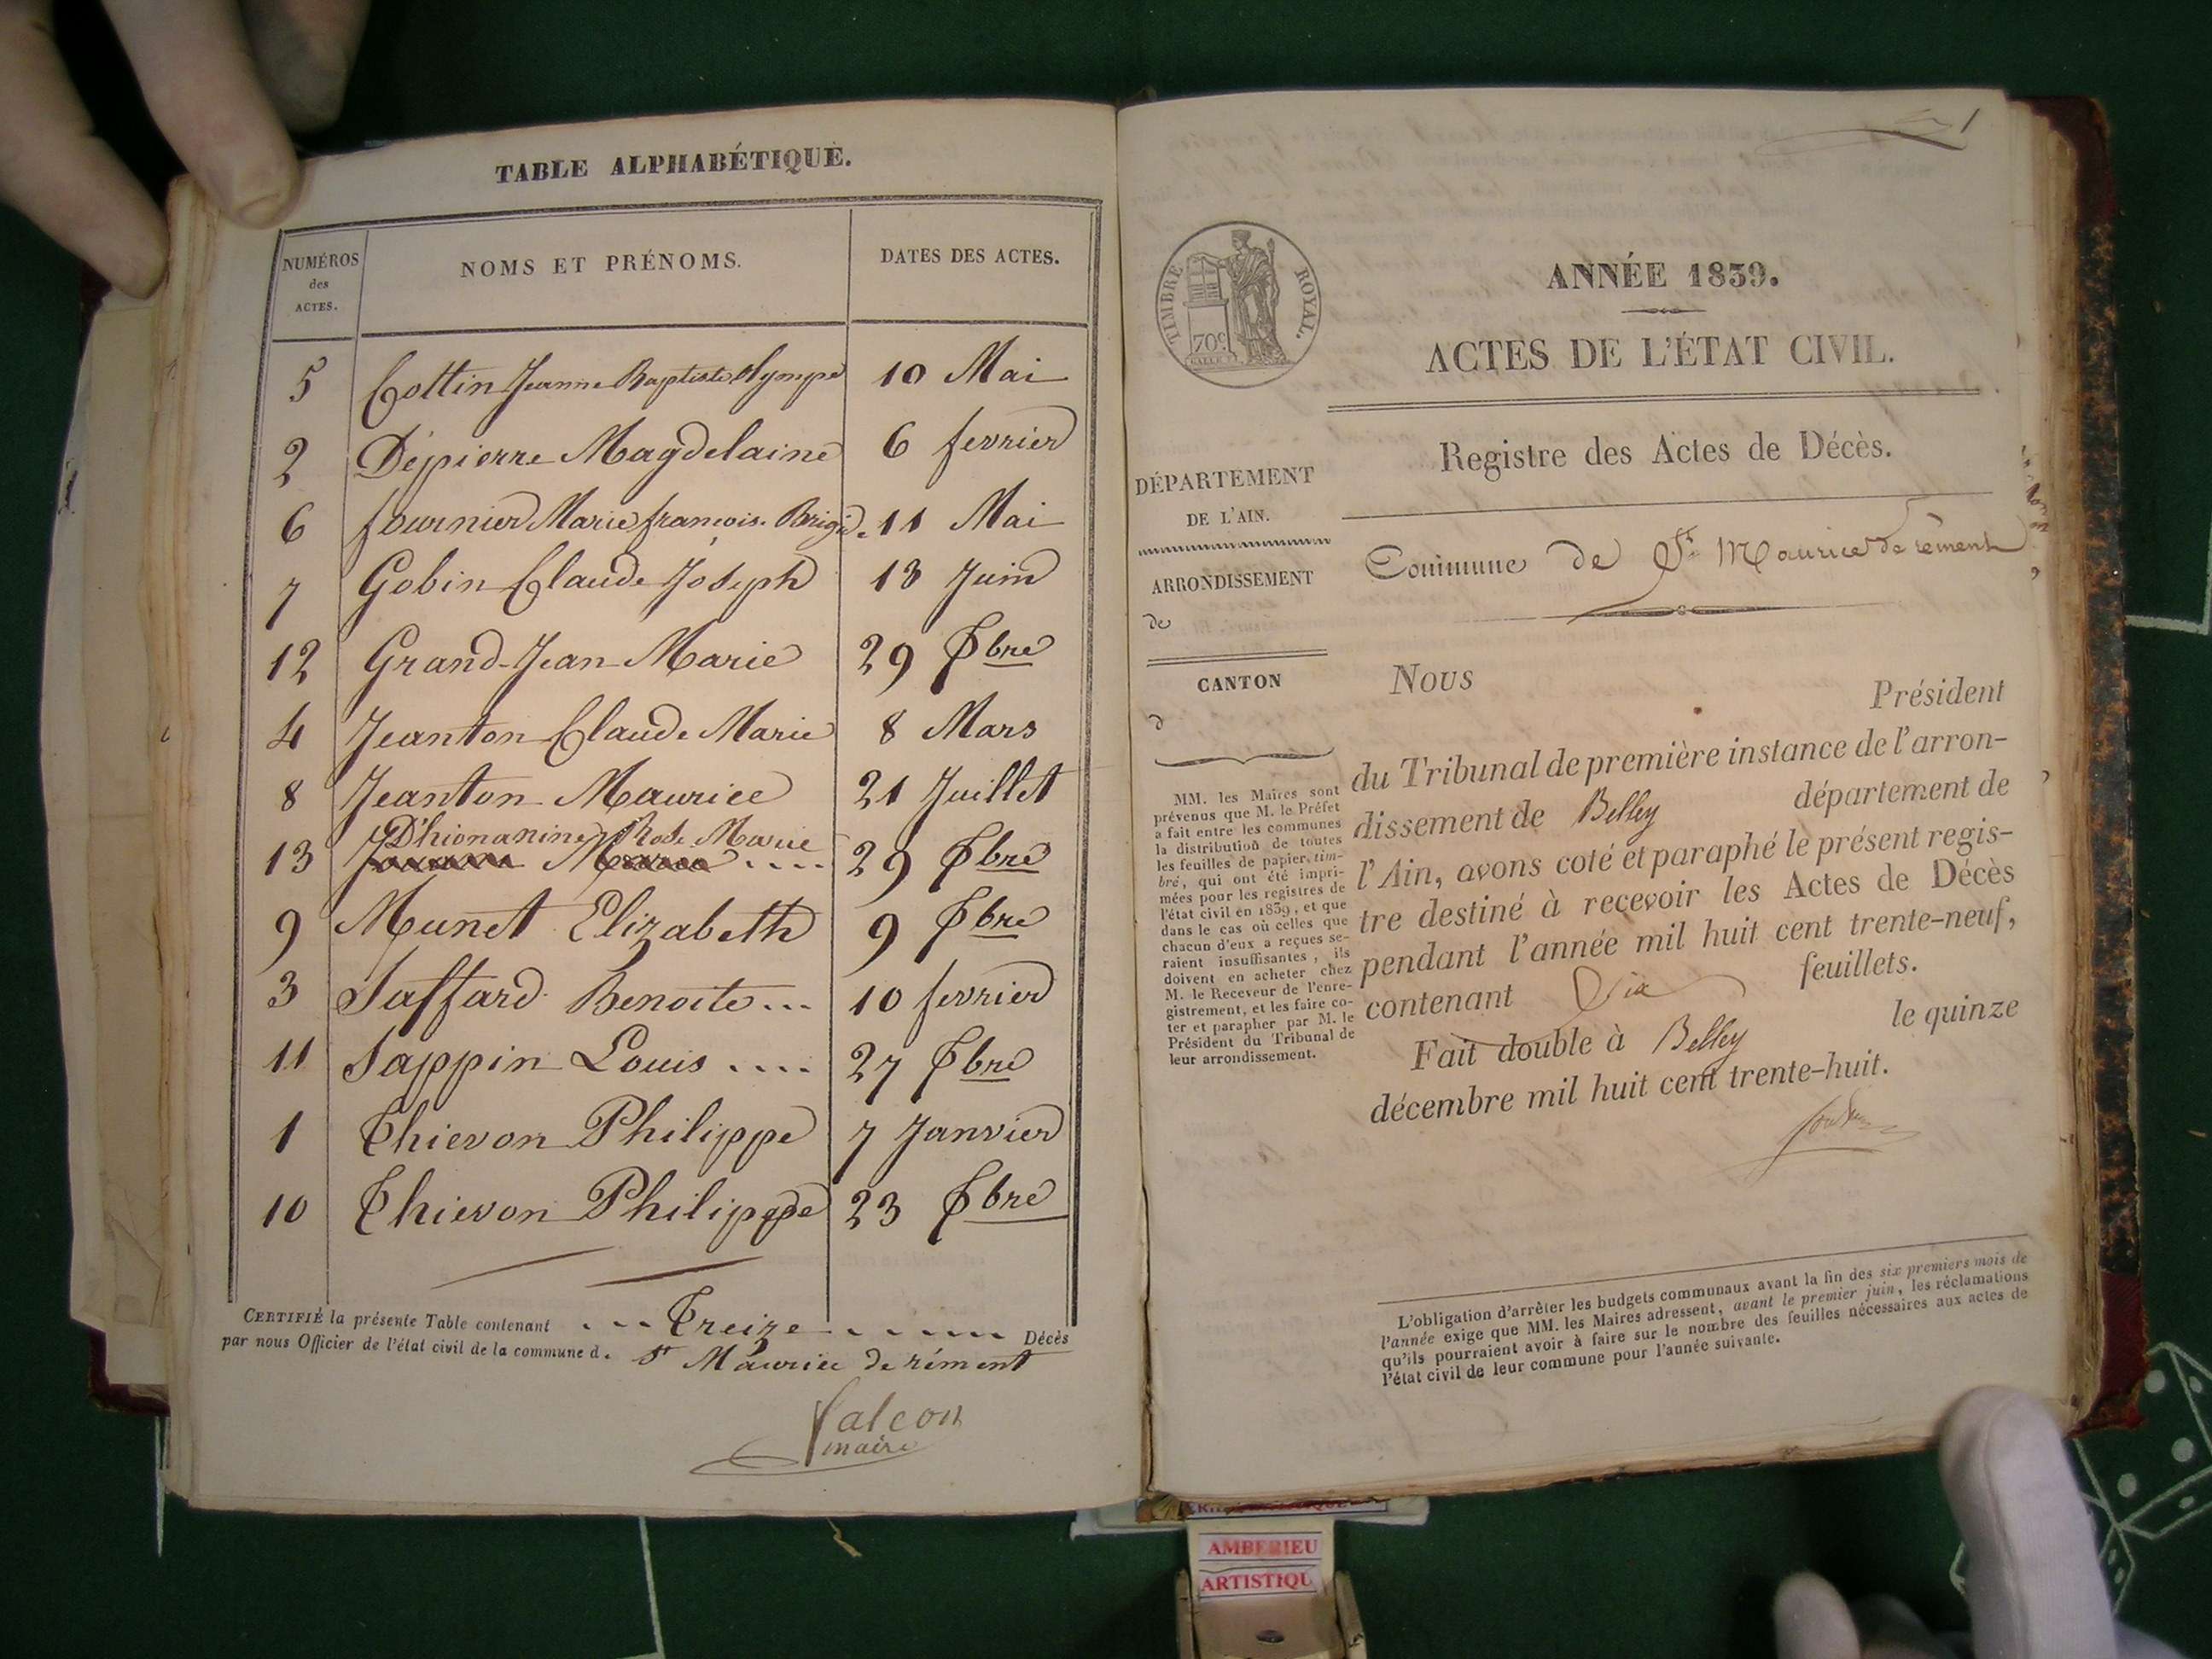 TABLE ALPHABÉTIQUE.
NUMÉROS
des
ACTES.
NOMS ET PRÉNOMS.
DATES DES ACTES.
5 Cottin Jeanne Baptiste Olympe 10 Mai
2 Dépierre Magdelaine 6 fevrier
6 fournier Marie françois. Brigid. 11 Mai
7 Gobin Claude Joseph 13 Juin
12 Grand-Jean Marie 29 bre
4 Jeanton Claude Marie 8 Mars
8 Jeanton Maurice 21 Juillet
D'hionanine Rose Marie
13 29 bre
9 Munet Elizabeth 9 bre
3 Saffard Benoite... 10 fevrier
11 Sappin Louis .... 27 bre
1 Thievon Philippe 7 Janvier
10 Thievon Philippe 23 bre
CERTIFIÉ la présente Table contenant Treize Décès
par nous Officier de l'état civil de la commune d. St Maurice de rément
falcon
maire
1
TIMBRE ROYAL.
70c
ANNÉE 1839.
ACTES DE L'ÉTAT CIVIL.
Registre des Actes de Décès.
Commune de St Maurice de rément
DÉPARTEMENT
DE L'AIN.
ARRONDISSEMENT
de
CANTON
d
MM. les Maires sont
prévenus que M. le Préfet
a fait entre les communes
la distribution de toutes
les feuilles de papier tim-
bré, qui ont été impri-
mées pour les registres de
l'état civil en 1839, et que
dans le cas où celles que
chacun d'eux a reçues se-
raient insuffisantes, ils
doivent en acheter chez
M. le Receveur de l'enre-
gistrement, et les faire co-
ter et parapher par M. le
Président du Tribunal de
leur arrondissement.
Nous Président
du Tribunal de première instance de l'arron-
dissement de Belley département de
l'Ain, avons coté et paraphé le présent regis-
tre destiné à recevoir les Actes de Décès
pendant l'année mil huit cent trente-neuf,
contenant feuillets.
Fait double à Belley le quinze
décembre mil huit cent trente-huit.
L'obligation d'arrêter les budgets communaux avant la fin des six premiers mois de
l'année exige que MM. les Maires adressent, avant le premier juin, les réclamations
qu'ils pourraient avoir à faire sur le nombre des feuilles nécessaires aux actes de
l'état civil de leur commune pour l'année suivante.
AMBERIEU
ARTISTIQU